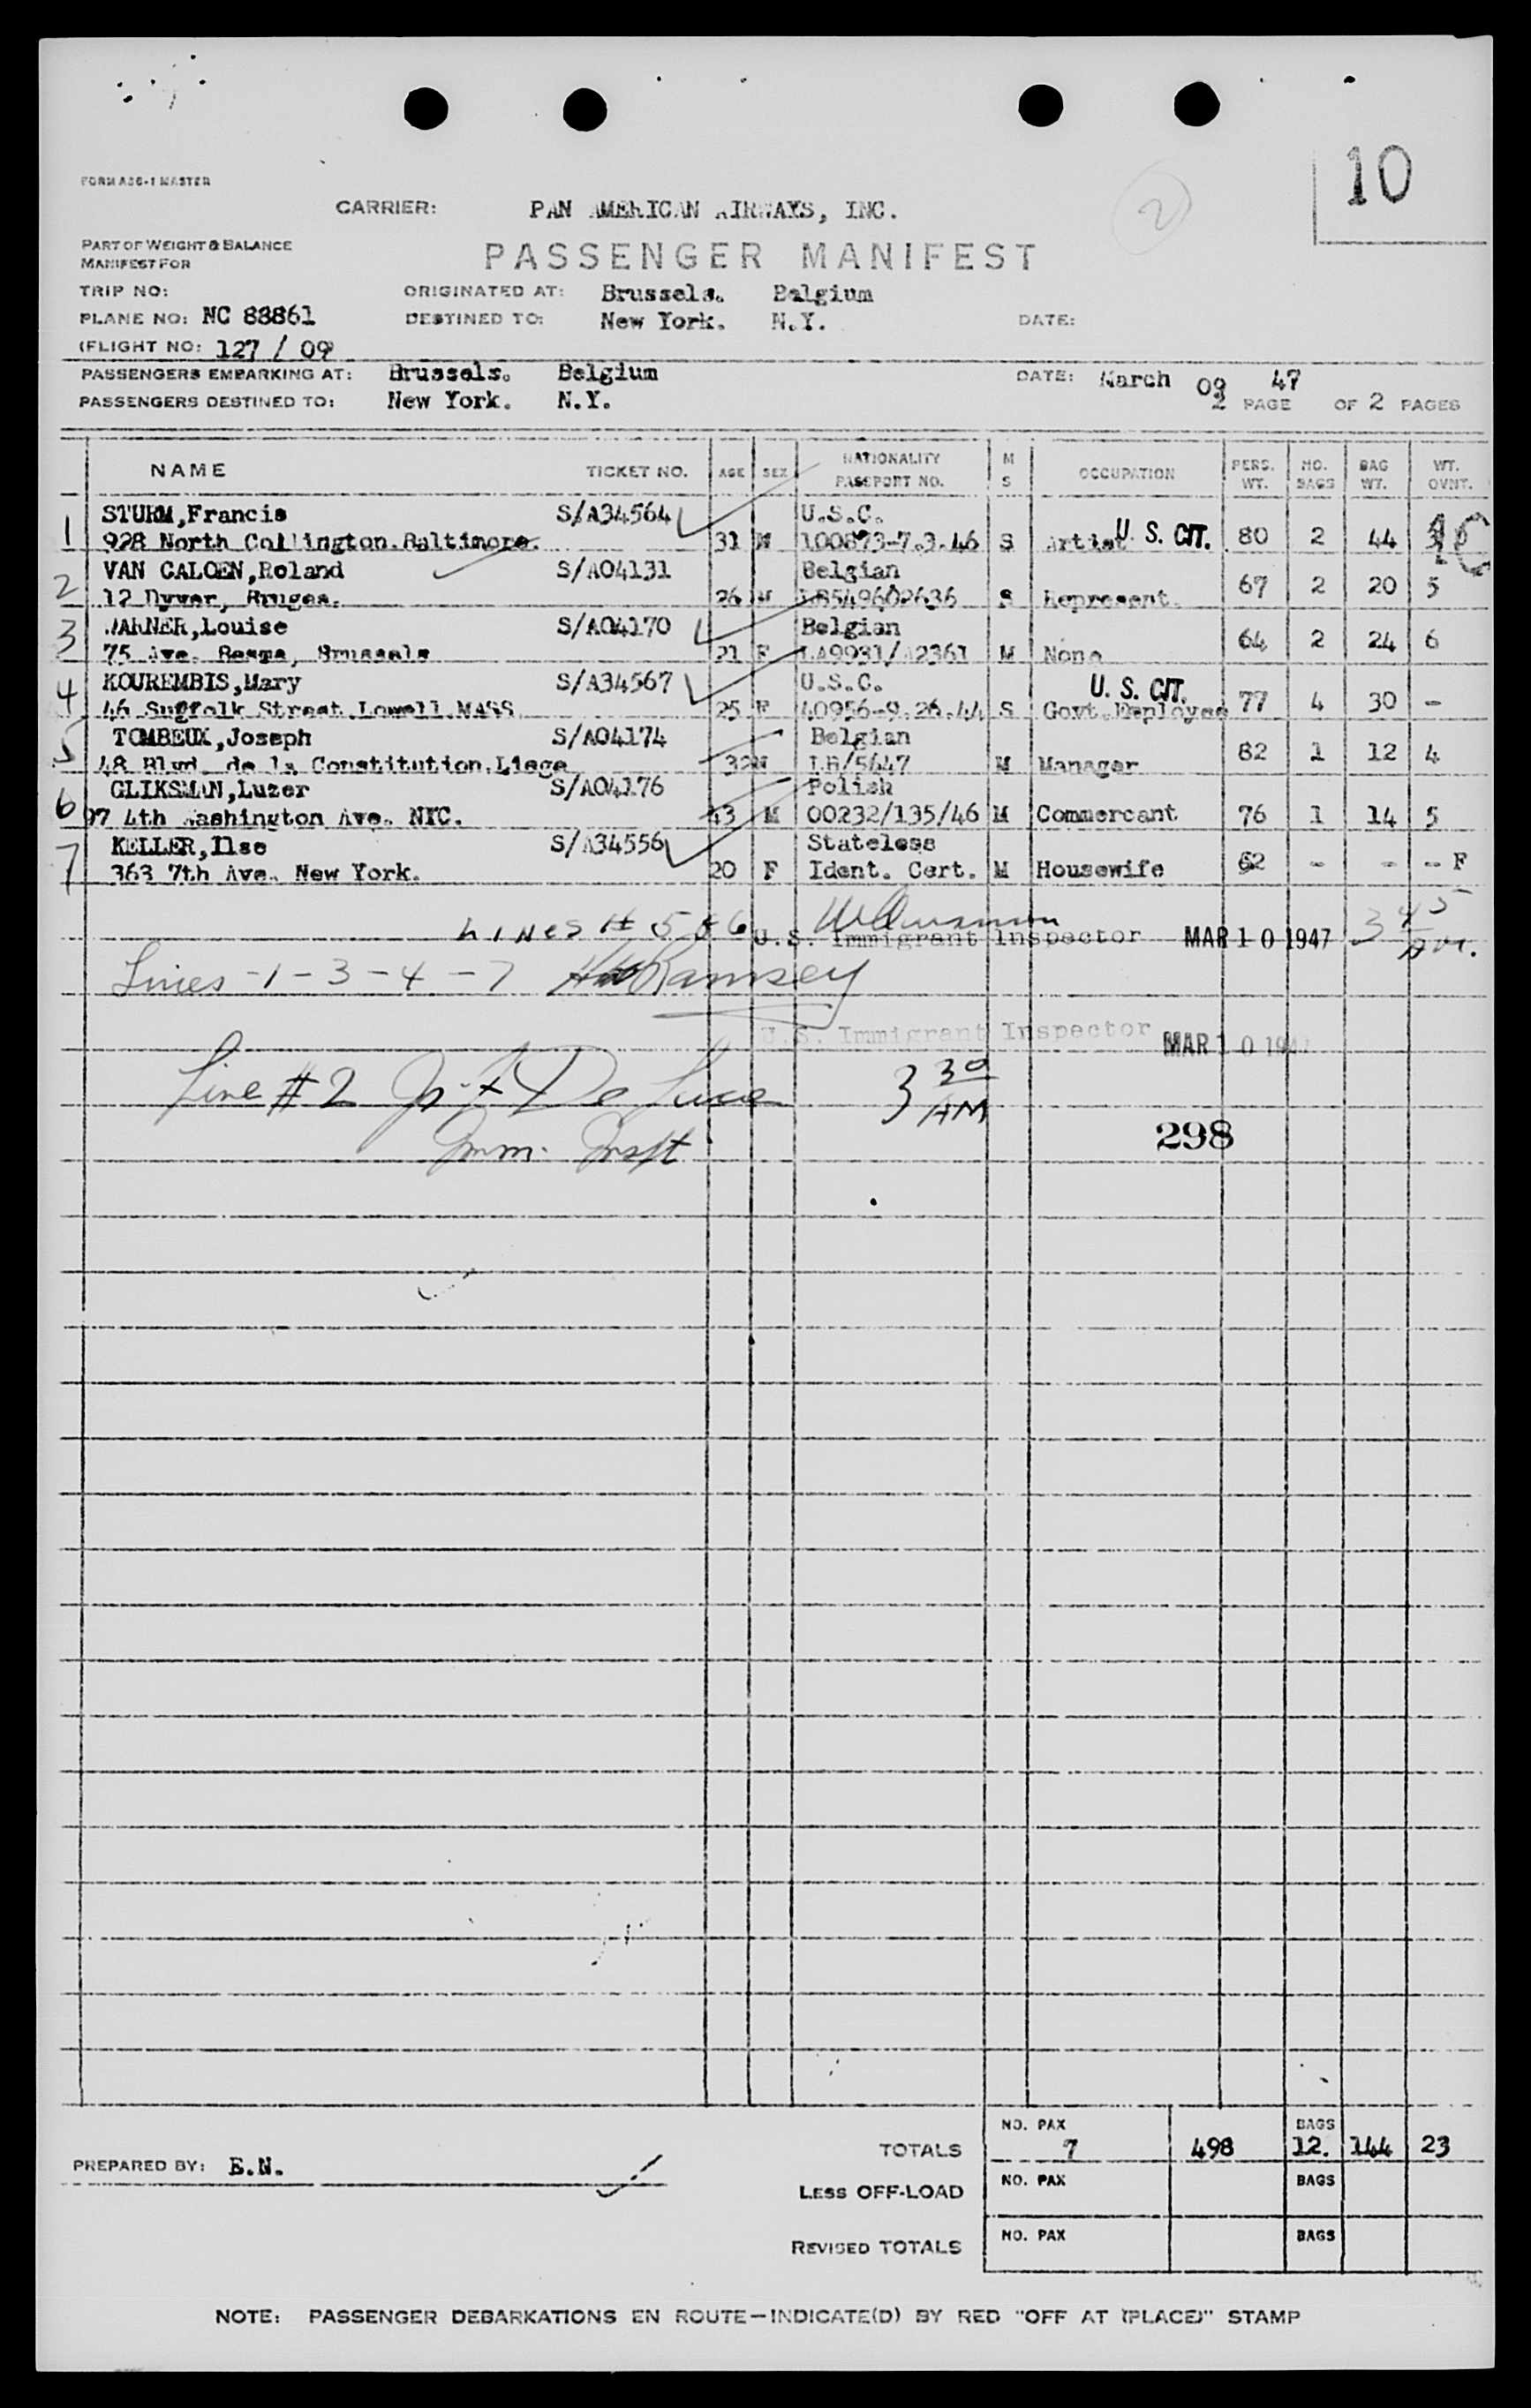 10
FORM A36-1 MASTER
2
CARRIER: PAN AMERICAN AIRWAYS, INC.
PART OF WEIGHT & BALANCE
MANIFEST FOR
PASSENGER MANIFEST
TRIP NO: ORIGINATED AT: Brussels. Belgium
PLANE NO: NC 88861 DESTINED TO: New York. N.Y. DATE:
(FLIGHT NO: 127 / 09
PASSENGERS EMBARKING AT: Brussels. Belgium DATE: March 09 47
PASSENGERS DESTINED TO: New York. N.Y. 2 PAGE OF 2 PAGES
NAME TICKET NO. AGE SEX NATIONALITY PASSPORT NO. M S OCCUPATION PERS. WT. NO. BAGS BAG WT. WT. OVNT.
STURM,Francis S/A34564 U.S.C.
1 928 North Collington.Baltimore. 31 M 100873-7.3.46 S Artist U. S. CIT. 80 2 44
VAN CALOEN,Roland S/A04131 Belgian
2 12 Dyver, Bruges. 26 M LB5549602636 S Represent. 67 2 20 5
WARNER,Louise S/A04170 Belgian
3 75 Ave. Besme, Brussels 21 F LA9931/A2361 M None 64 2 24 6
KOUREMBIS,Mary S/A34567 U.S.C.
4 46 Suffolk Street.Lowell.MASS 25 F 40956-9.26.44 S Govt.Employee U. S. CIT. 77 4 30 -
TOMBEUX,Joseph S/A04174 Belgian
5 48 Blvd. de la Constitution.Liege 32 M LB/5647 M Manager 82 1 12 4
GLIKSMAN,Luzer S/A04176 Polish
6 97 4th Washington Ave. NYC. 43 M 00232/135/46 M Commercant 76 1 14 5
KELLER,Ilse S/A34556 Stateless
7 363 7th Ave. New York. 20 F Ident. Cert. M Housewife 52 - - - F
LINES # 5 & 6 U.S. Immigrant Inspector MAR 10 1947 3 45 AM.
Lines -1-3-4-7 Ramsey
U.S. Immigrant Inspector MAR 10 1947
Line #2 De Luca 3 30 AM
Imm. Inspt. 298
TOTALS NO. PAX 7 498 BAGS 12. 144 23
PREPARED BY: E.N.
LESS OFF-LOAD NO. PAX BAGS
REVISED TOTALS NO. PAX BAGS
NOTE: PASSENGER DEBARKATIONS EN ROUTE—INDICATE(D) BY RED "OFF AT (PLACE)" STAMP